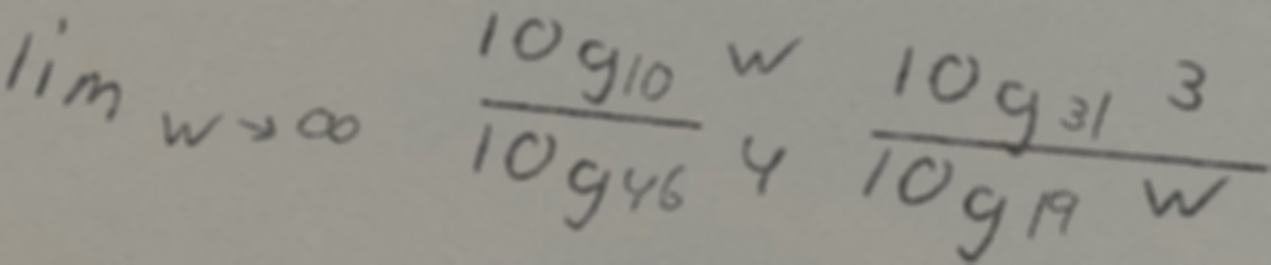 lim w→∞ log₁₀ w / log₄₆ 4 log₃₁ 3 / log₁₉ w